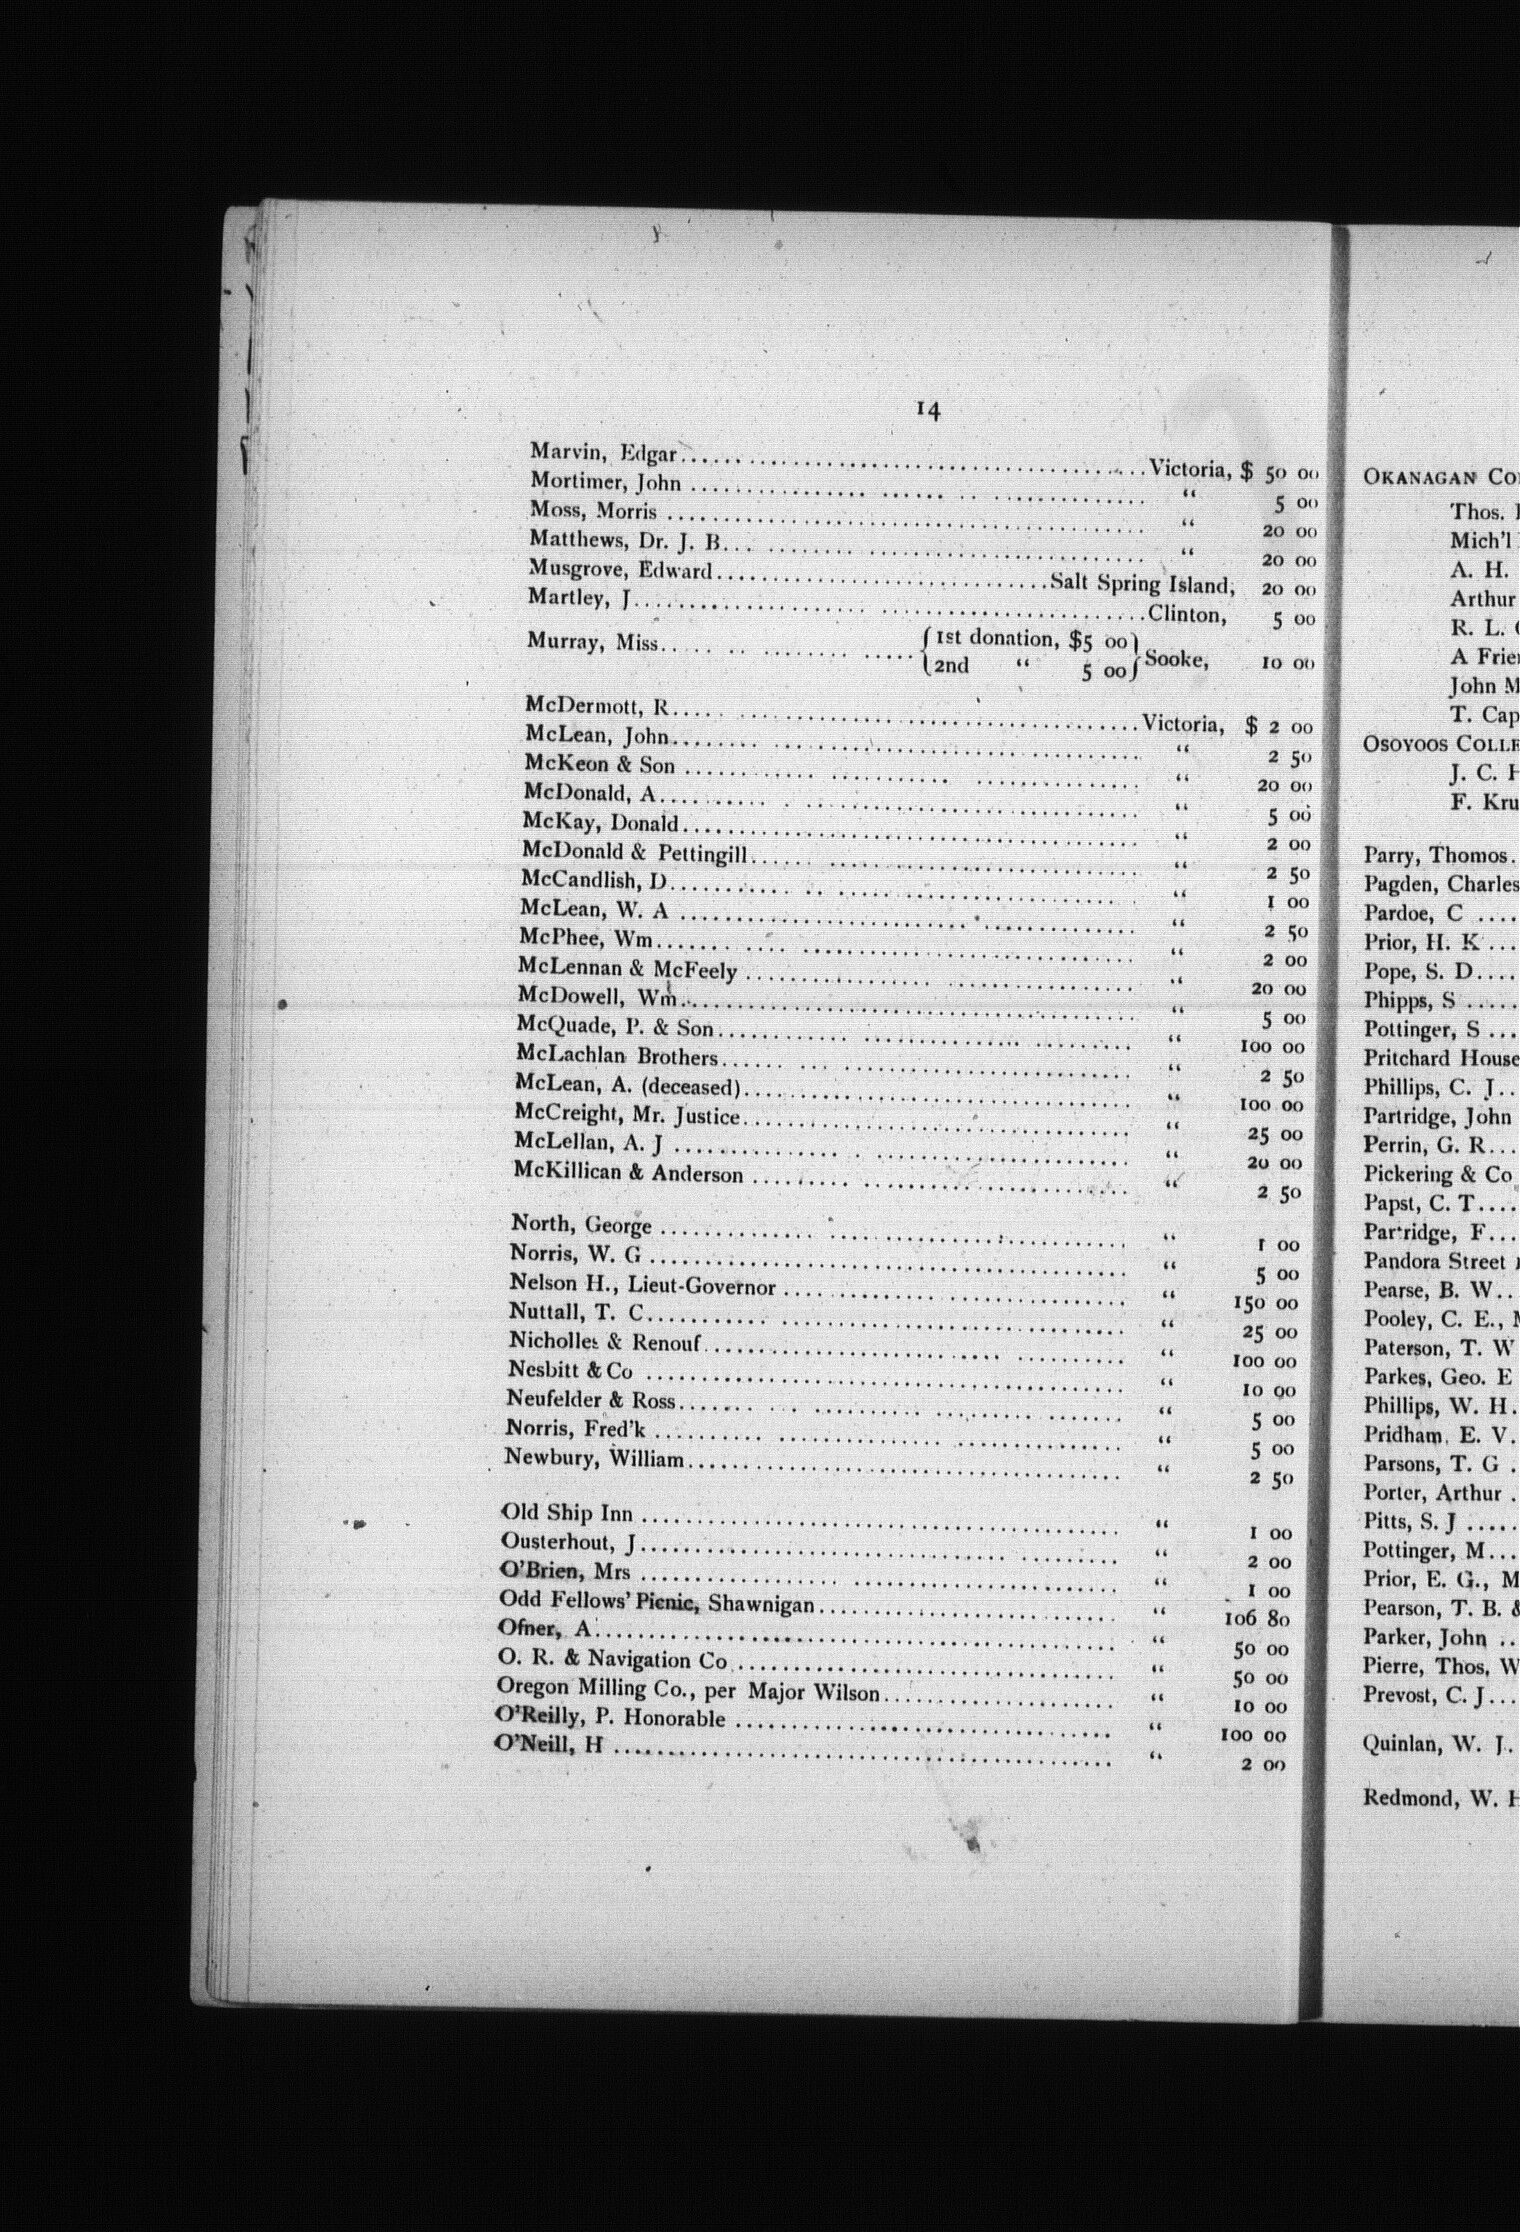 14
Marvin, Edgar........................................Victoria, $ 50 00
Mortimer, John ........................................ “ 5 00
Moss, Morris ........................................ “ 20 00
Matthews, Dr. J. B........................................ “ 20 00
Musgrove, Edward..............................Salt Spring Island, 20 00
Martley, J........................................Clinton, 5 00
Murray, Miss.................... {1st donation, $5 00} Sooke, 10 00
{2nd “ 5 00}
McDermott, R........................................Victoria, $ 2 00
McLean, John........................................ “ 2 50
McKeon & Son ........................................ “ 20 00
McDonald, A........................................ “ 5 00
McKay, Donald........................................ “ 2 00
McDonald & Pettingill.................................... “ 2 50
McCandlish, D........................................ “ 1 00
McLean, W. A ........................................ “ 2 50
McPhee, Wm........................................ “ 2 00
McLennan & McFeely .................................... “ 20 00
McDowell, Wm........................................ “ 5 00
McQuade, P. & Son.................................... “ 100 00
McLachlan Brothers.................................... “ 2 50
McLean, A. (deceased).................................... “ 100 00
McCreight, Mr. Justice.................................... “ 25 00
McLellan, A. J ........................................ “ 20 00
McKillican & Anderson .................................... “ 2 50
North, George ........................................ “ 1 00
Norris, W. G ........................................ “ 5 00
Nelson H., Lieut-Governor .............................. “ 150 00
Nuttall, T. C........................................ “ 25 00
Nicholles & Renouf.................................... “ 100 00
Nesbitt & Co ........................................ “ 10 00
Neufelder & Ross........................................ “ 5 00
Norris, Fred'k ........................................ “ 5 00
Newbury, William........................................ “ 2 50
Old Ship Inn ........................................ “ 1 00
Ousterhout, J........................................ “ 2 00
O'Brien, Mrs ........................................ “ 1 00
Odd Fellows' Picnic, Shawnigan.............................. “ 106 80
Ofner, A........................................ “ 50 00
O. R. & Navigation Co.................................... “ 50 00
Oregon Milling Co., per Major Wilson.................... “ 10 00
O'Reilly, P. Honorable .................................... “ 100 00
O'Neill, H ........................................ “ 2 00
OKANAGAN
Thos.
Mich'l
A. H.
Arthur
R. L.
A
John
T.
OSOYOOS
J. C.
F.
Parry, Thomos.
Pagden, Charles
Pardoe, C ....
Prior, H. K ...
Pope, S. D....
Phipps, S .....
Pottinger, S ...
Pritchard House
Phillips, C. J..
Partridge, John
Perrin, G. R...
Pickering & Co
Papst, C. T....
Partridge, F...
Pandora Street
Pearse, B. W..
Pooley, C. E.,
Paterson, T. W
Parkes, Geo. E
Phillips, W. H.
Pridham, E. V.
Parsons, T. G .
Porter, Arthur .
Pitts, S. J .....
Pottinger, M...
Prior, E. G.,
Pearson, T. B. &
Parker, John ..
Pierre, Thos. W
Prevost, C. J...
Quinlan, W. J.
Redmond, W. H